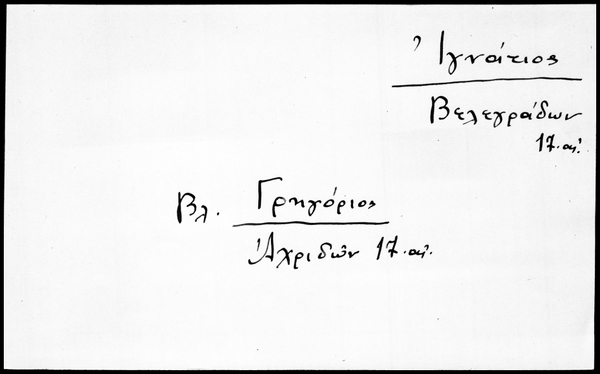 Ἰγνάτιος
Βελεγράδων
17. αἰ.
Βλ. Γρηγόριος
Ἀχριδῶν 17. αἰ.